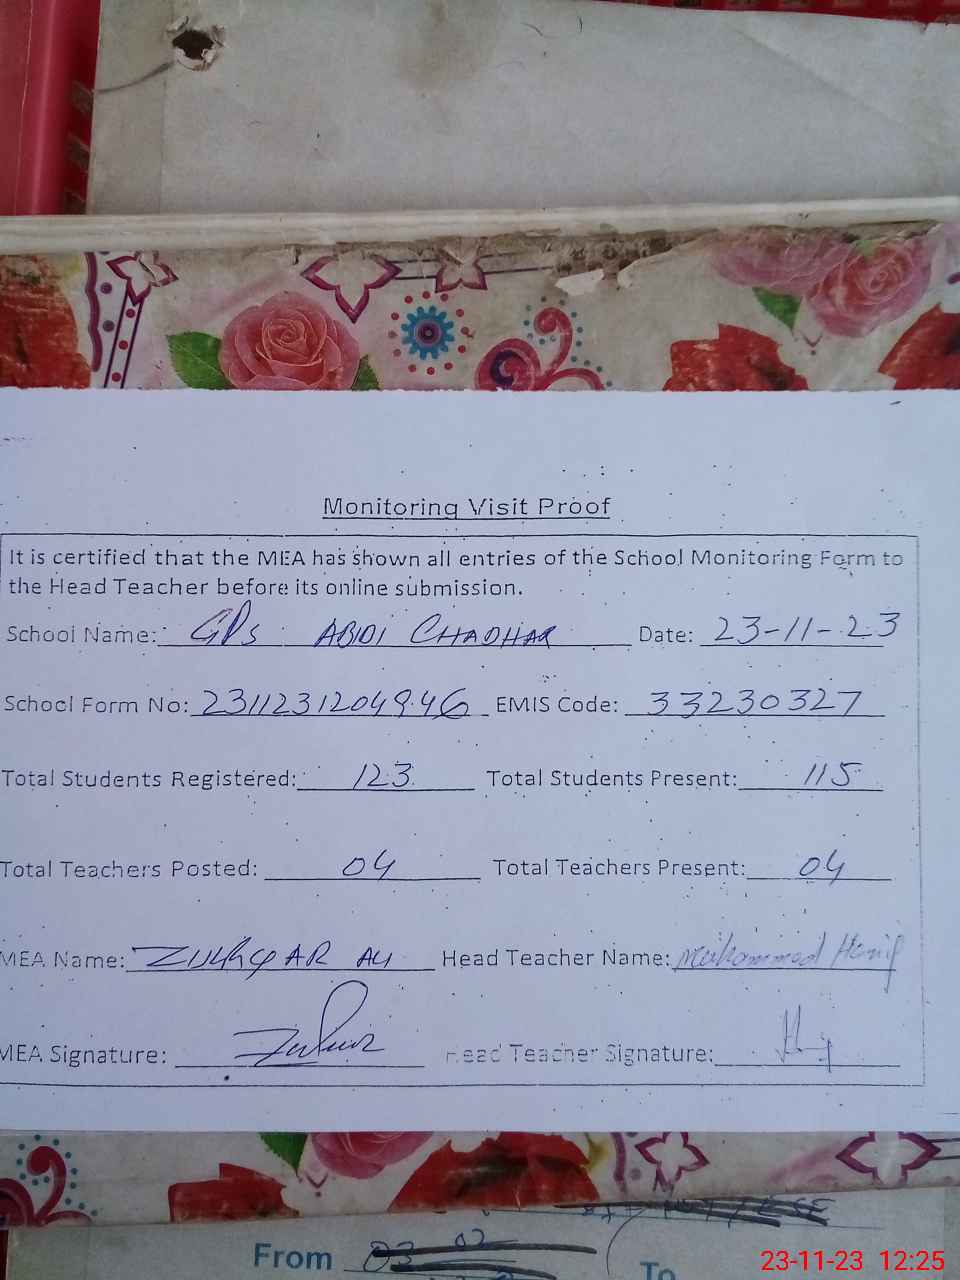 Monitoring Visit Proof
It is certified that the MEA has shown all entries of the School Monitoring Form to
the Head Teacher before its online submission.
School Name: GPS ABIDI CHADHAR Date: 23-11-23
School Form No: 23112312049946 EMIS Code: 33230327
Total Students Registered: 123 Total Students Present: 115
Total Teachers Posted: 04 Total Teachers Present: 04
MEA Name: ZULFIQAR ALI Head Teacher Name: Muhammad Hanif
MEA Signature: Head Teacher Signature:
From To
23-11-23 12:25